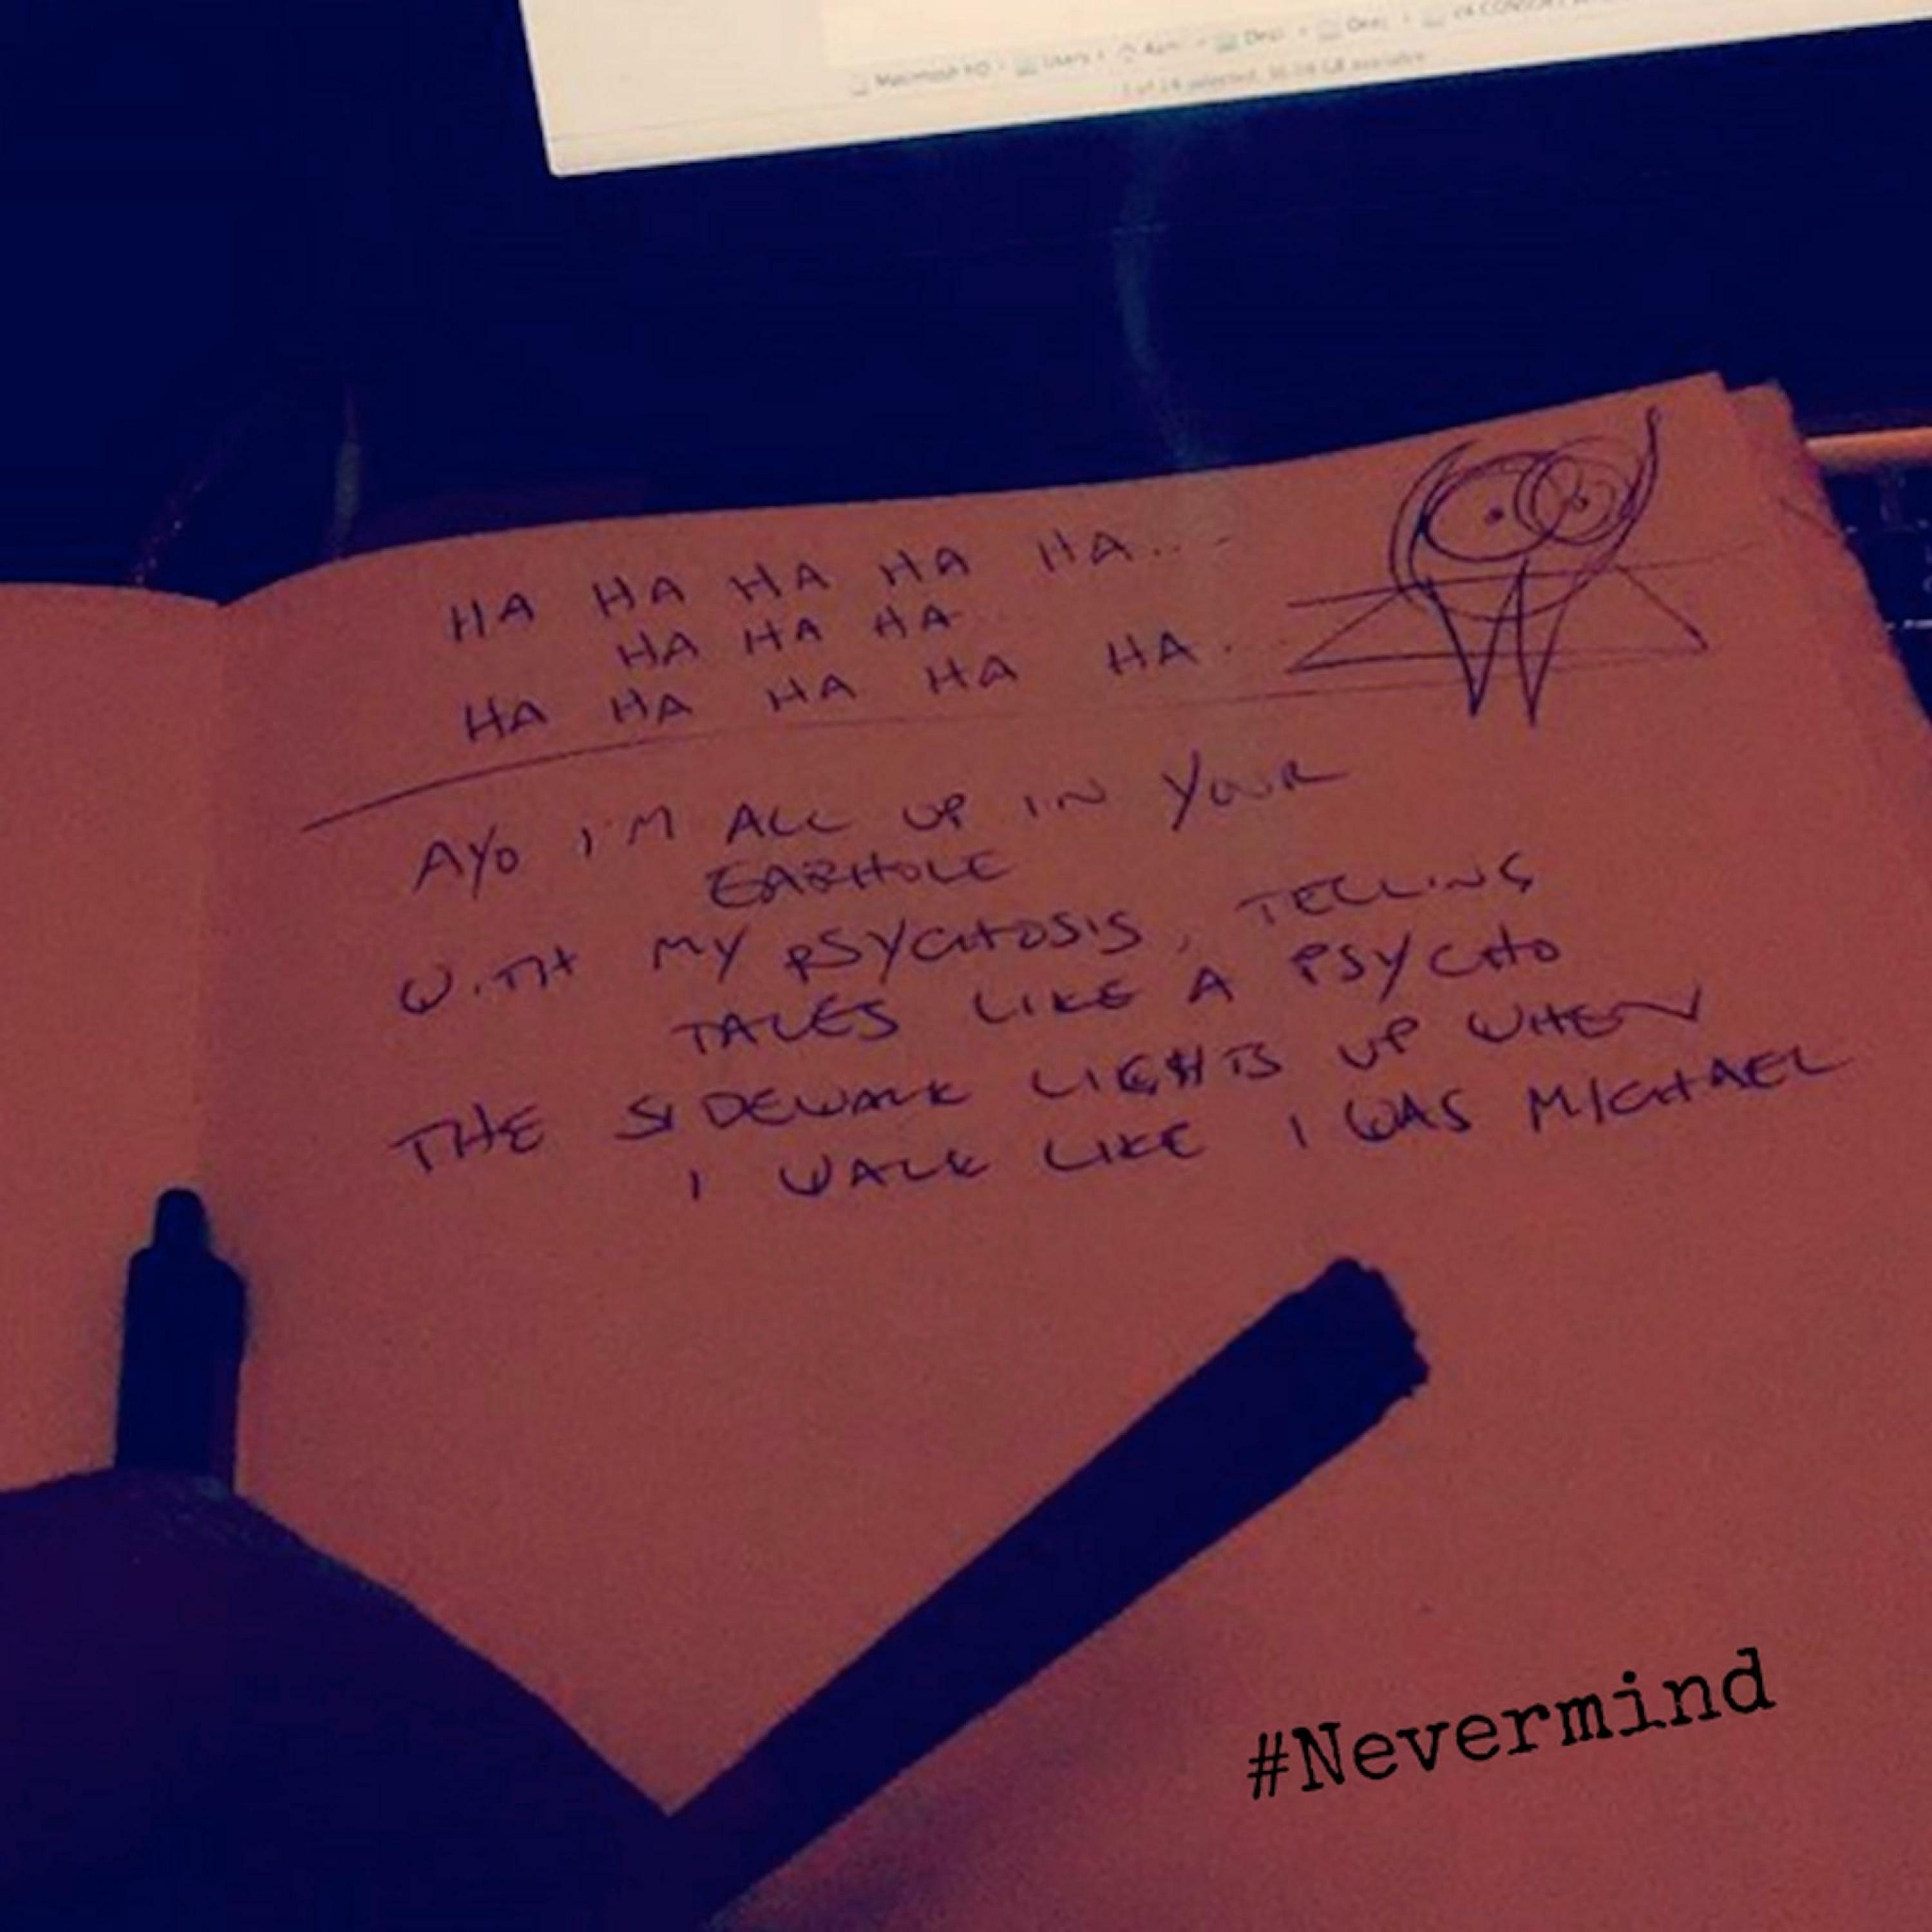 Macintosh HD Users
HA HA HA HA HA...
HA HA HA..
HA HA HA HA HA..
AYO I'M ALL UP IN YOUR
EARHOLE
WITH MY PSYCHOSIS, TELLING
TALES LIKE A PSYCHO
THE SIDEWALK LIGHTS UP WHEN
I WALK LIKE I WAS MICHAEL
#Nevermind